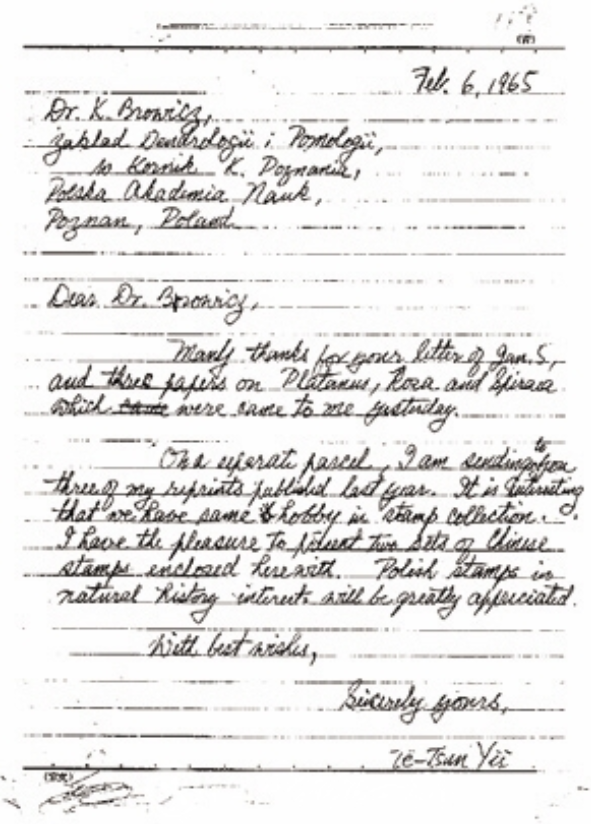 Feb. 6, 1965
Dr. K. Browicz,
Zaklad Dendrologii i Pomologii,
w Kornik K. Poznania,
Polska Akademia Nauk,
Poznan, Poland
Dear Dr. Browicz,
Many thanks for your letter of Jan. 5,
and three papers on Platanus, Rosa and Spiraea
which came were came to me yesterday.
On a seperate parcel, I am sending to you
three of my reprints published last year. It is interesting
that we have same hobby in stamp collection.
I have the pleasure to present two sets of Chinese
stamps enclosed herewith. Polish stamps in
natural history interests will be greatly appreciated.
With best wishes,
Sincerely yours,
Te-Tsun Yü